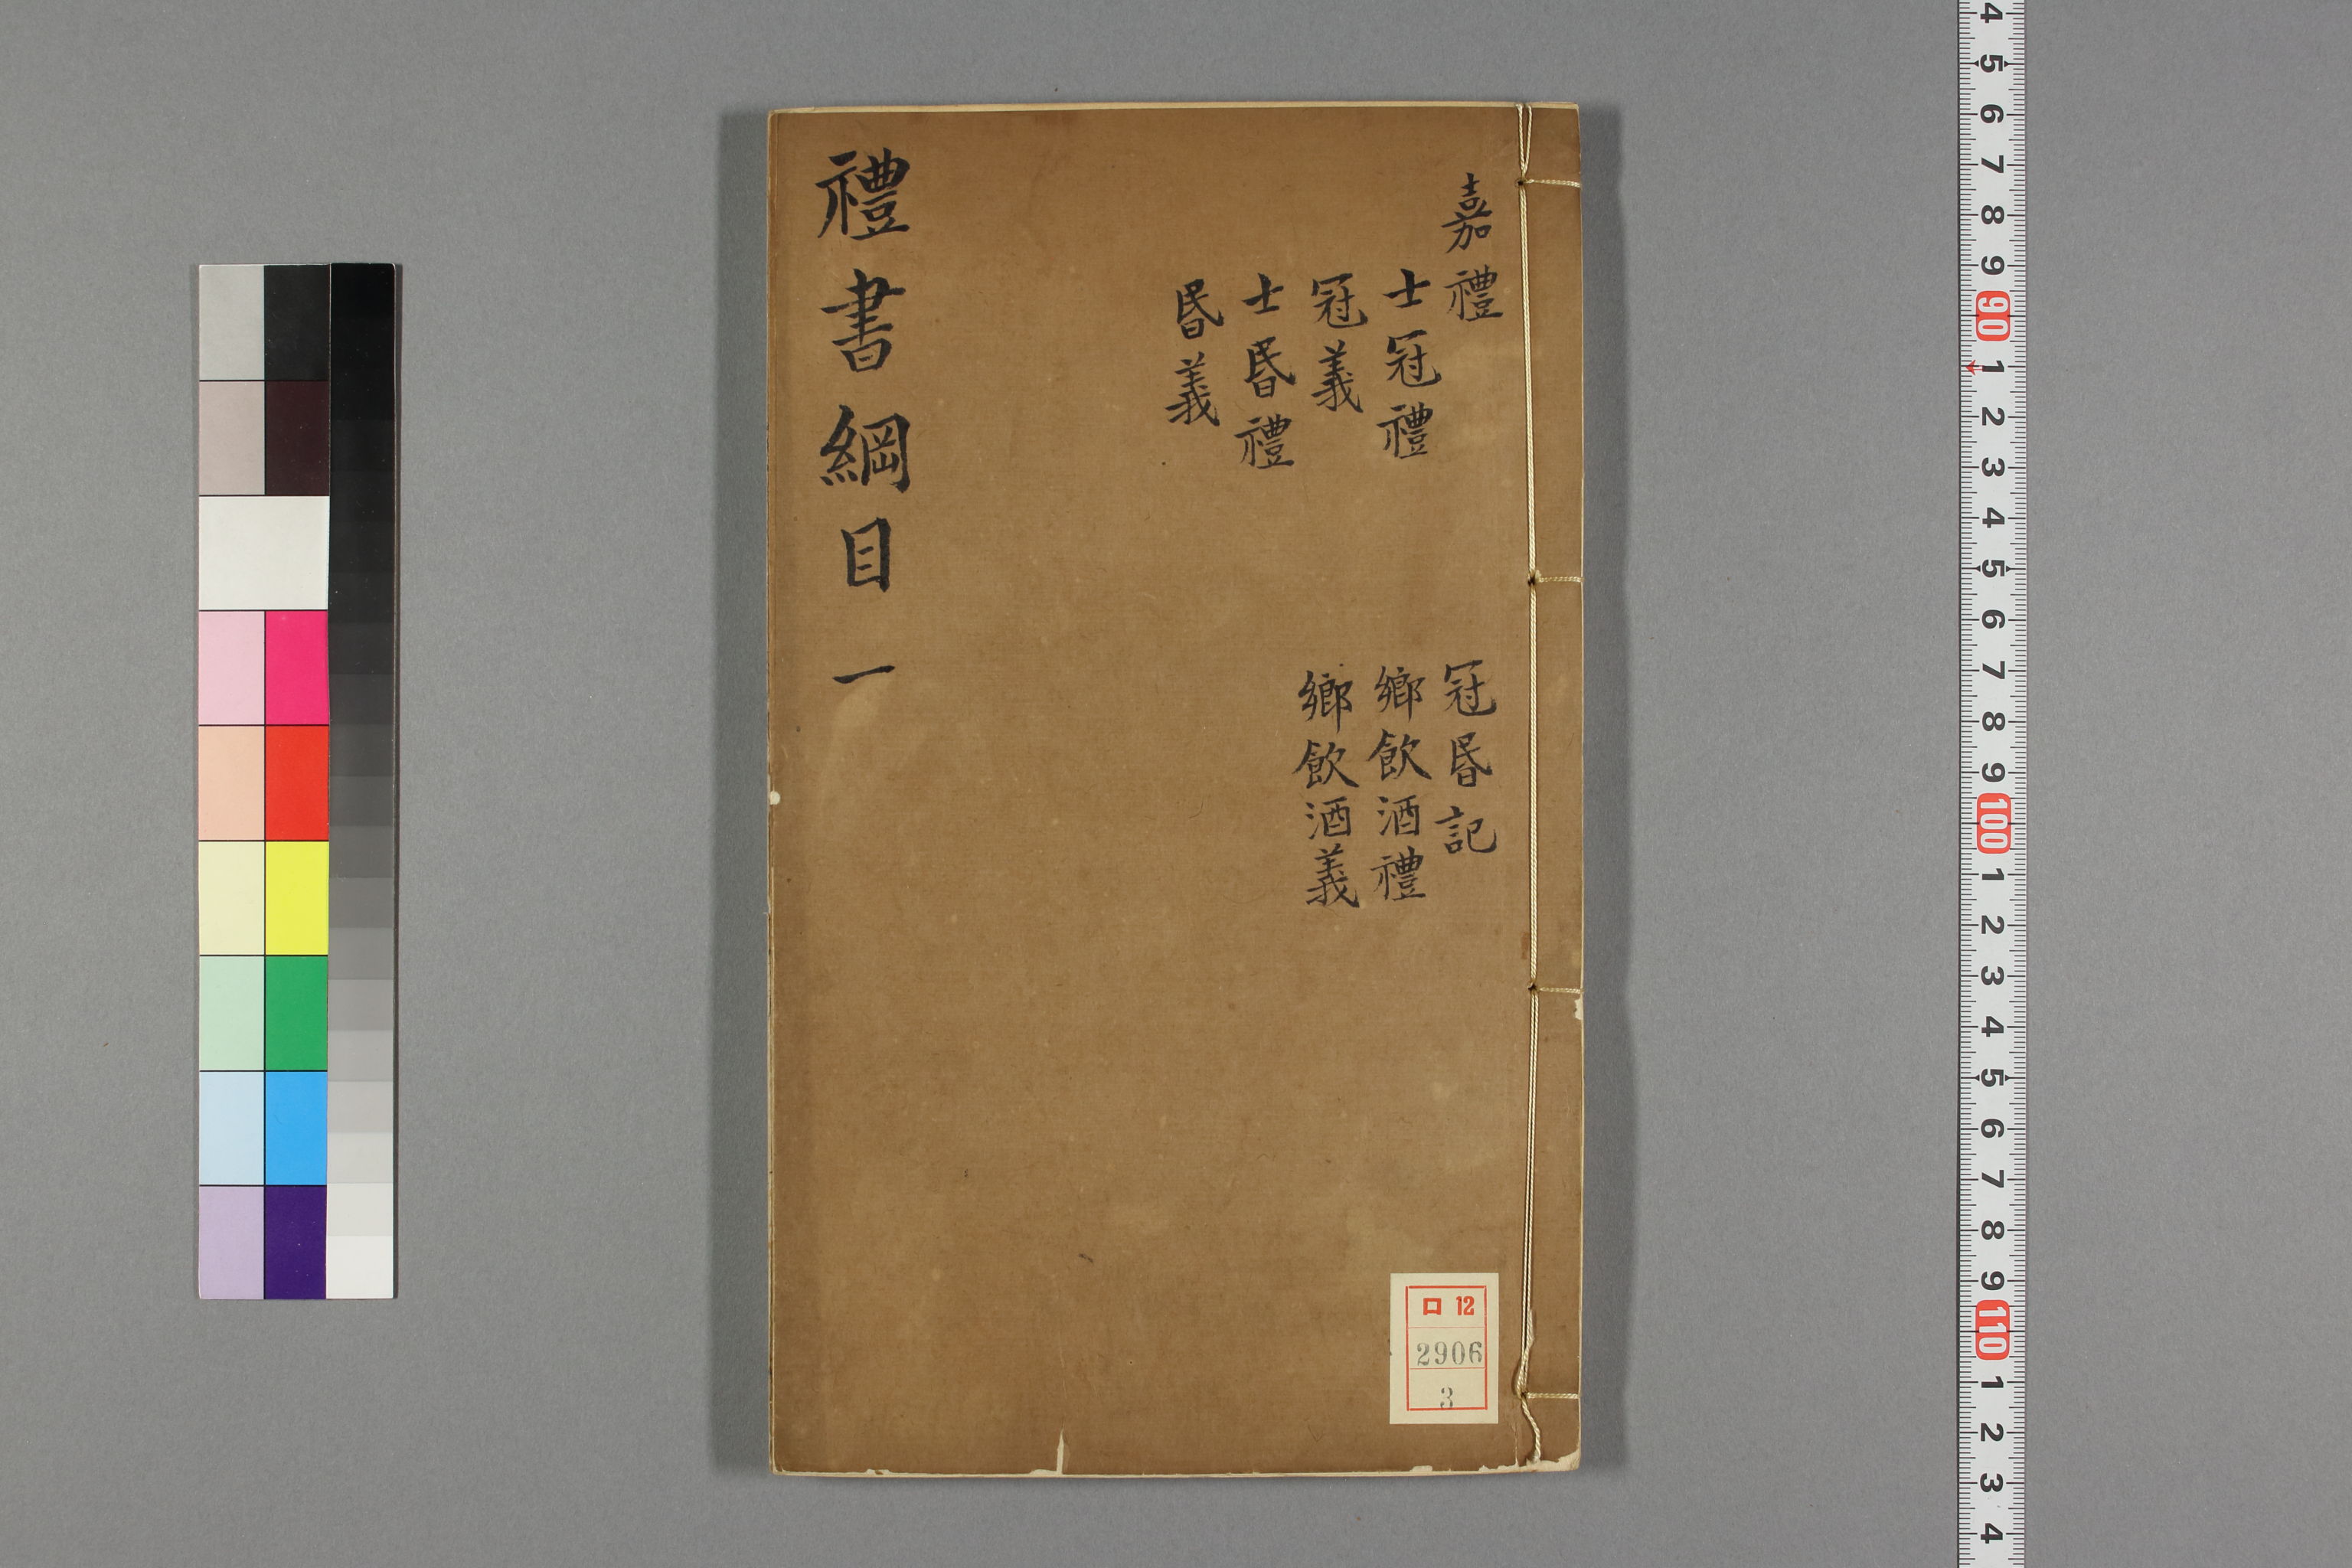 嘉禮
士冠禮
冠義
士昬禮
昬義
冠昬記
鄉飲酒禮
鄉飲酒義
禮書綱目 一
ロ 12
2906
3
4 5 6 7 8 9 90 1 2 3 4 5 6 7 8 9 100 1 2 3 4 5 6 7 8 9 110 1 2 3 4